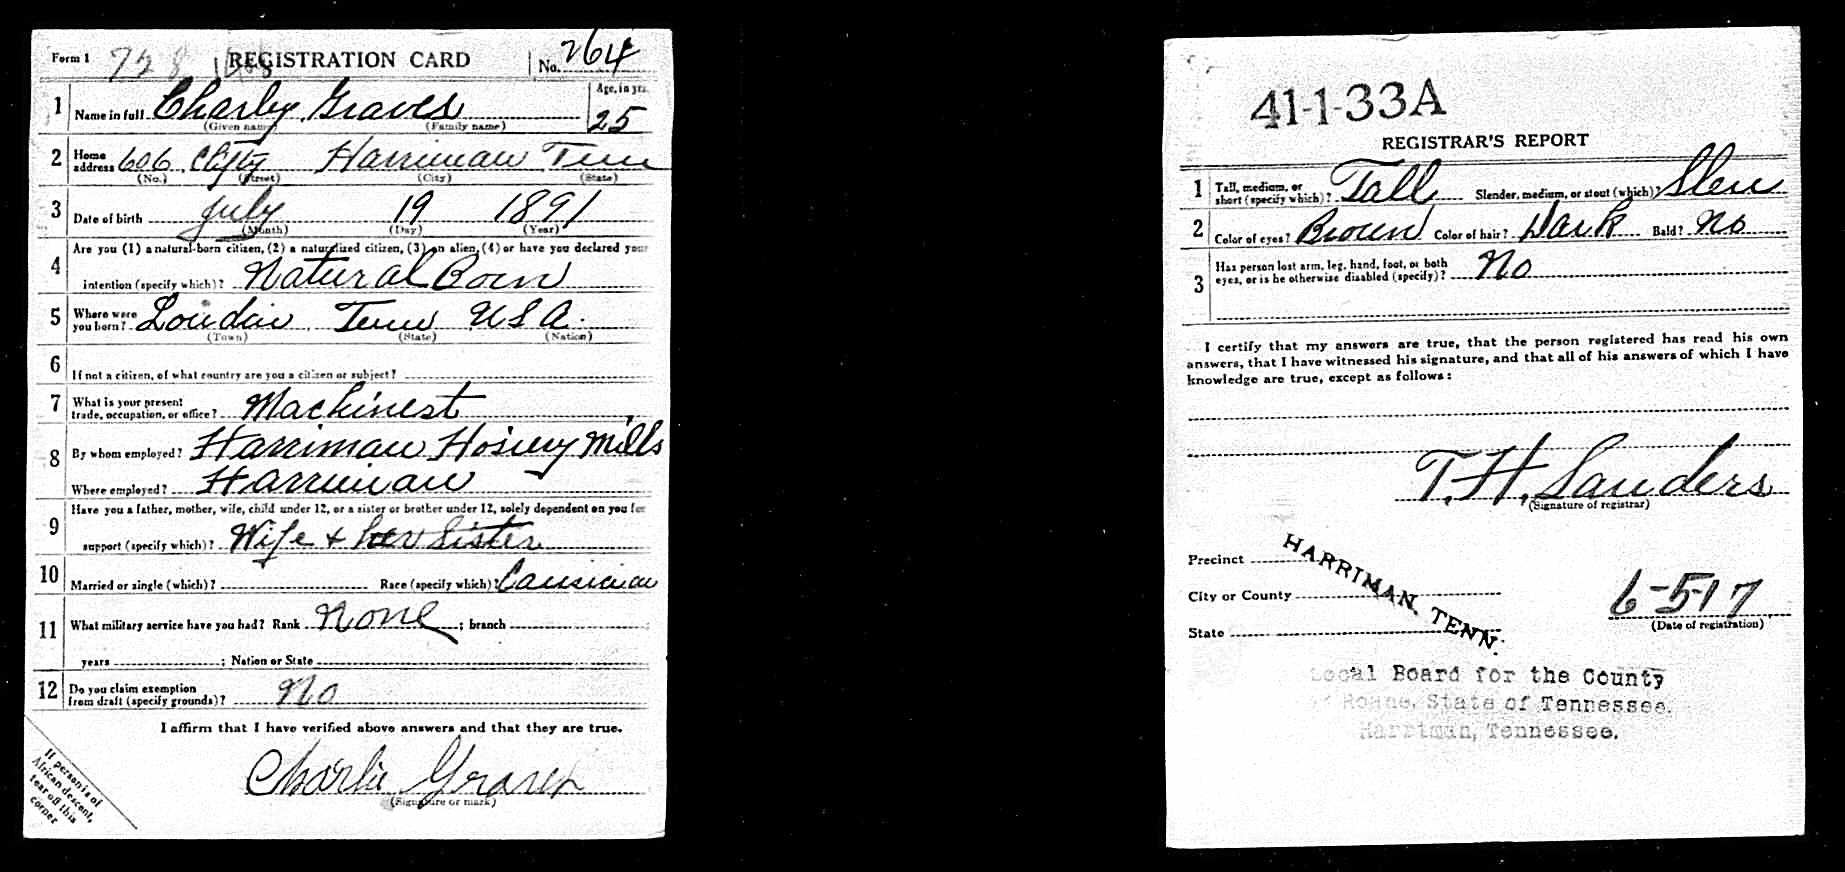 Form 1 728 REGISTRATION CARD No. 264
1 Name in full Charley Graves Age, in yrs.
(Given name) (Family name) 25
2 Home address 606 Clifty Harriman Tenn
(No.) (Street) (City) (State)
3 Date of birth July 19 1891
(Month) (Day) (Year)
4 Are you (1) a natural-born citizen, (2) a naturalized citizen, (3) an alien, (4) or have you declared your
intention (specify which)? Natural Born
5 Where were you born? Loudin Tenn USA.
(Town) (State) (Nation)
6 If not a citizen, of what country are you a citizen or subject?
7 What is your present trade, occupation, or office? Machinest
8 By whom employed? Harriman Hosiery Mills
Where employed? Harriman
9 Have you a father, mother, wife, child under 12, or a sister or brother under 12, solely dependent on you for
support (specify which)? Wife + her Sister
10 Married or single (which)? Race (specify which)?
11 What military service have you had? Rank None ; branch
years ; Nation or State
12 Do you claim exemption from draft (specify grounds)? No
I affirm that I have verified above answers and that they are true.
Charlie Graves
(Signature or mark)
If person is of
African descent,
tear off this
corner
41-1-33A
REGISTRAR'S REPORT
1 Tall, medium, or short (specify which)? Tall Slender, medium, or stout (which)? Slen
2 Color of eyes? Brown Color of hair? Dark Bald? No
3 Has person lost arm, leg, hand, foot, or both
eyes, or is he otherwise disabled (specify)? No
I certify that my answers are true, that the person registered has read his own
answers, that I have witnessed his signature, and that all of his answers of which I have
knowledge are true, except as follows:
T. H. Sanders
(Signature of registrar)
Precinct
City or County
State
HARRIMAN, TENN.
6-5-17
(Date of registration)
Local Board for the County
of Roane, State of Tennessee.
Harriman, Tennessee.